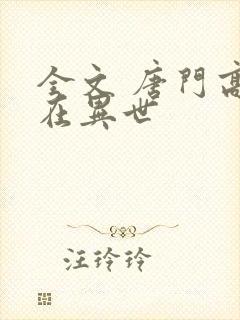 全文 唐門高
在異世
汪玲玲